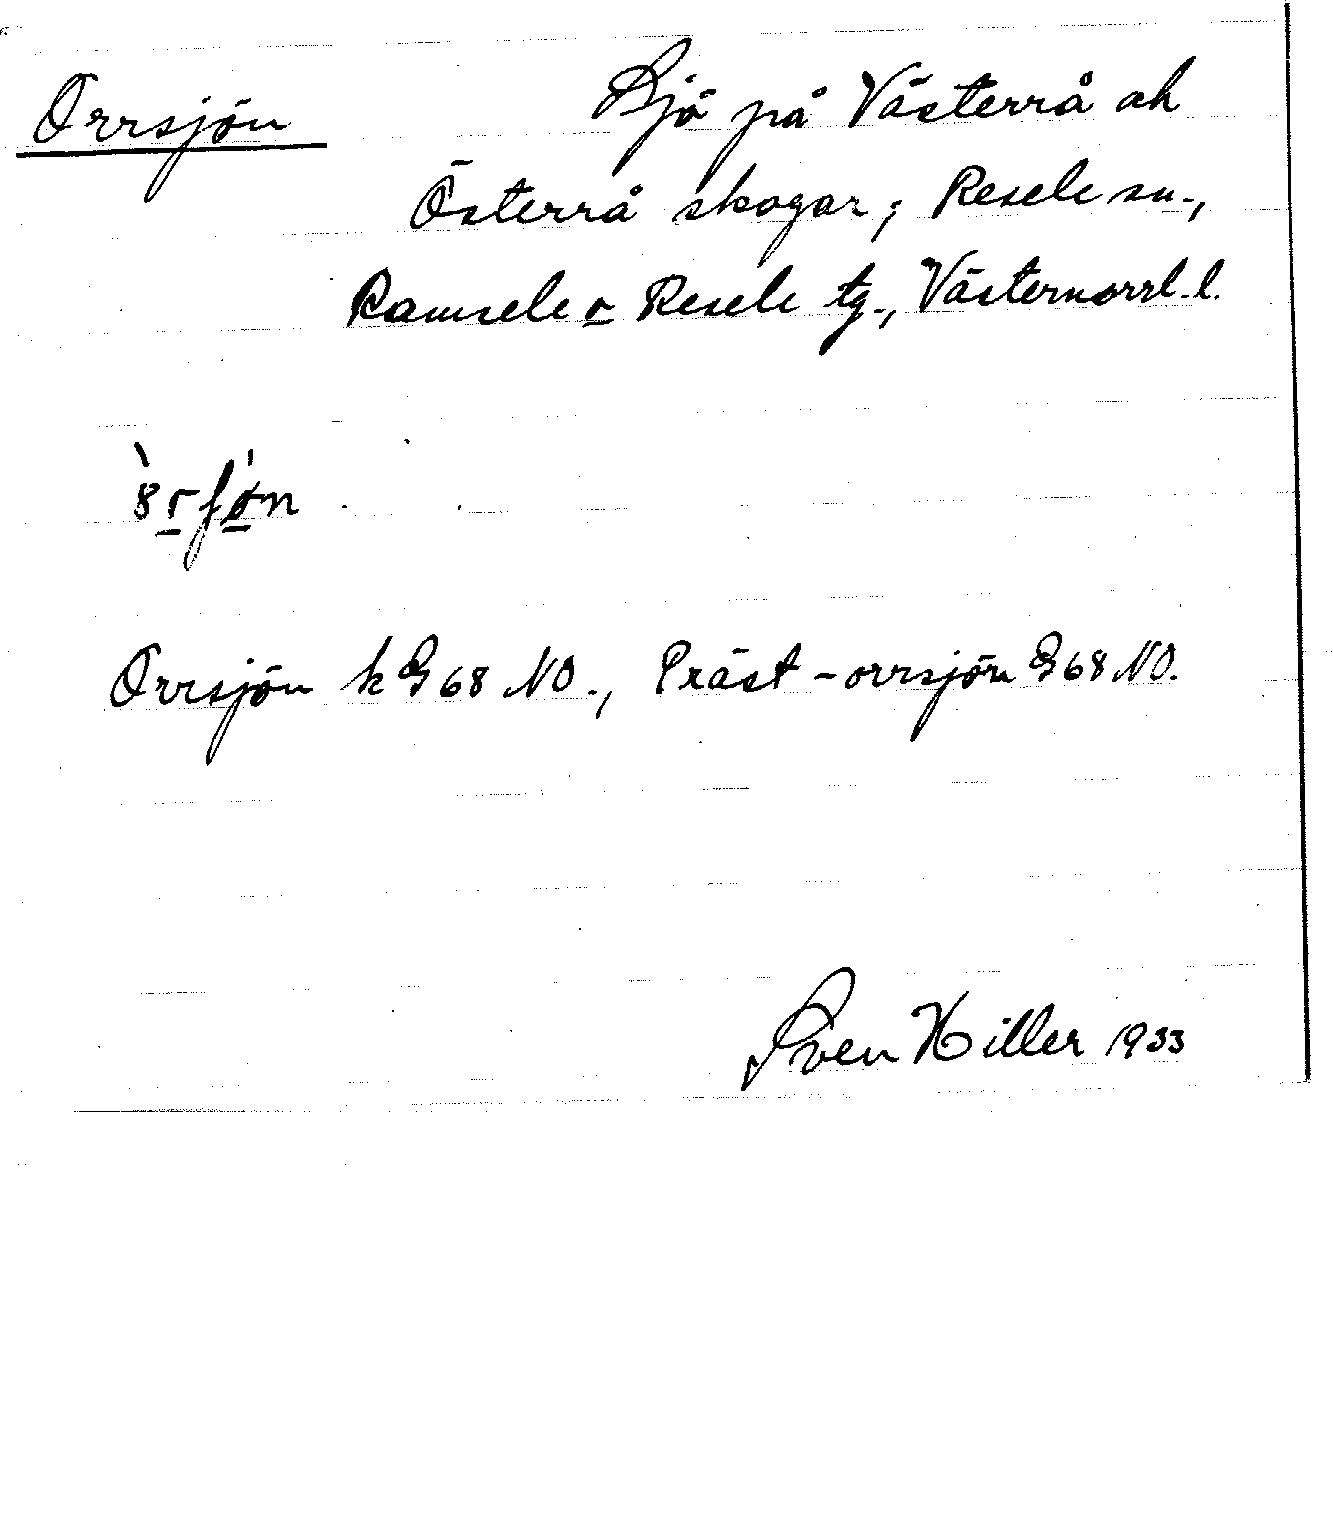 Orrsjön Sjö på Västerrå ah
Österrå skogar; Resele sn.,
Ramsele o Resele tg., Västernorrl. l.
Orrsjön k G 68 NO., Präst-orrsjön G 68 NO.
Sven Hiller 1933